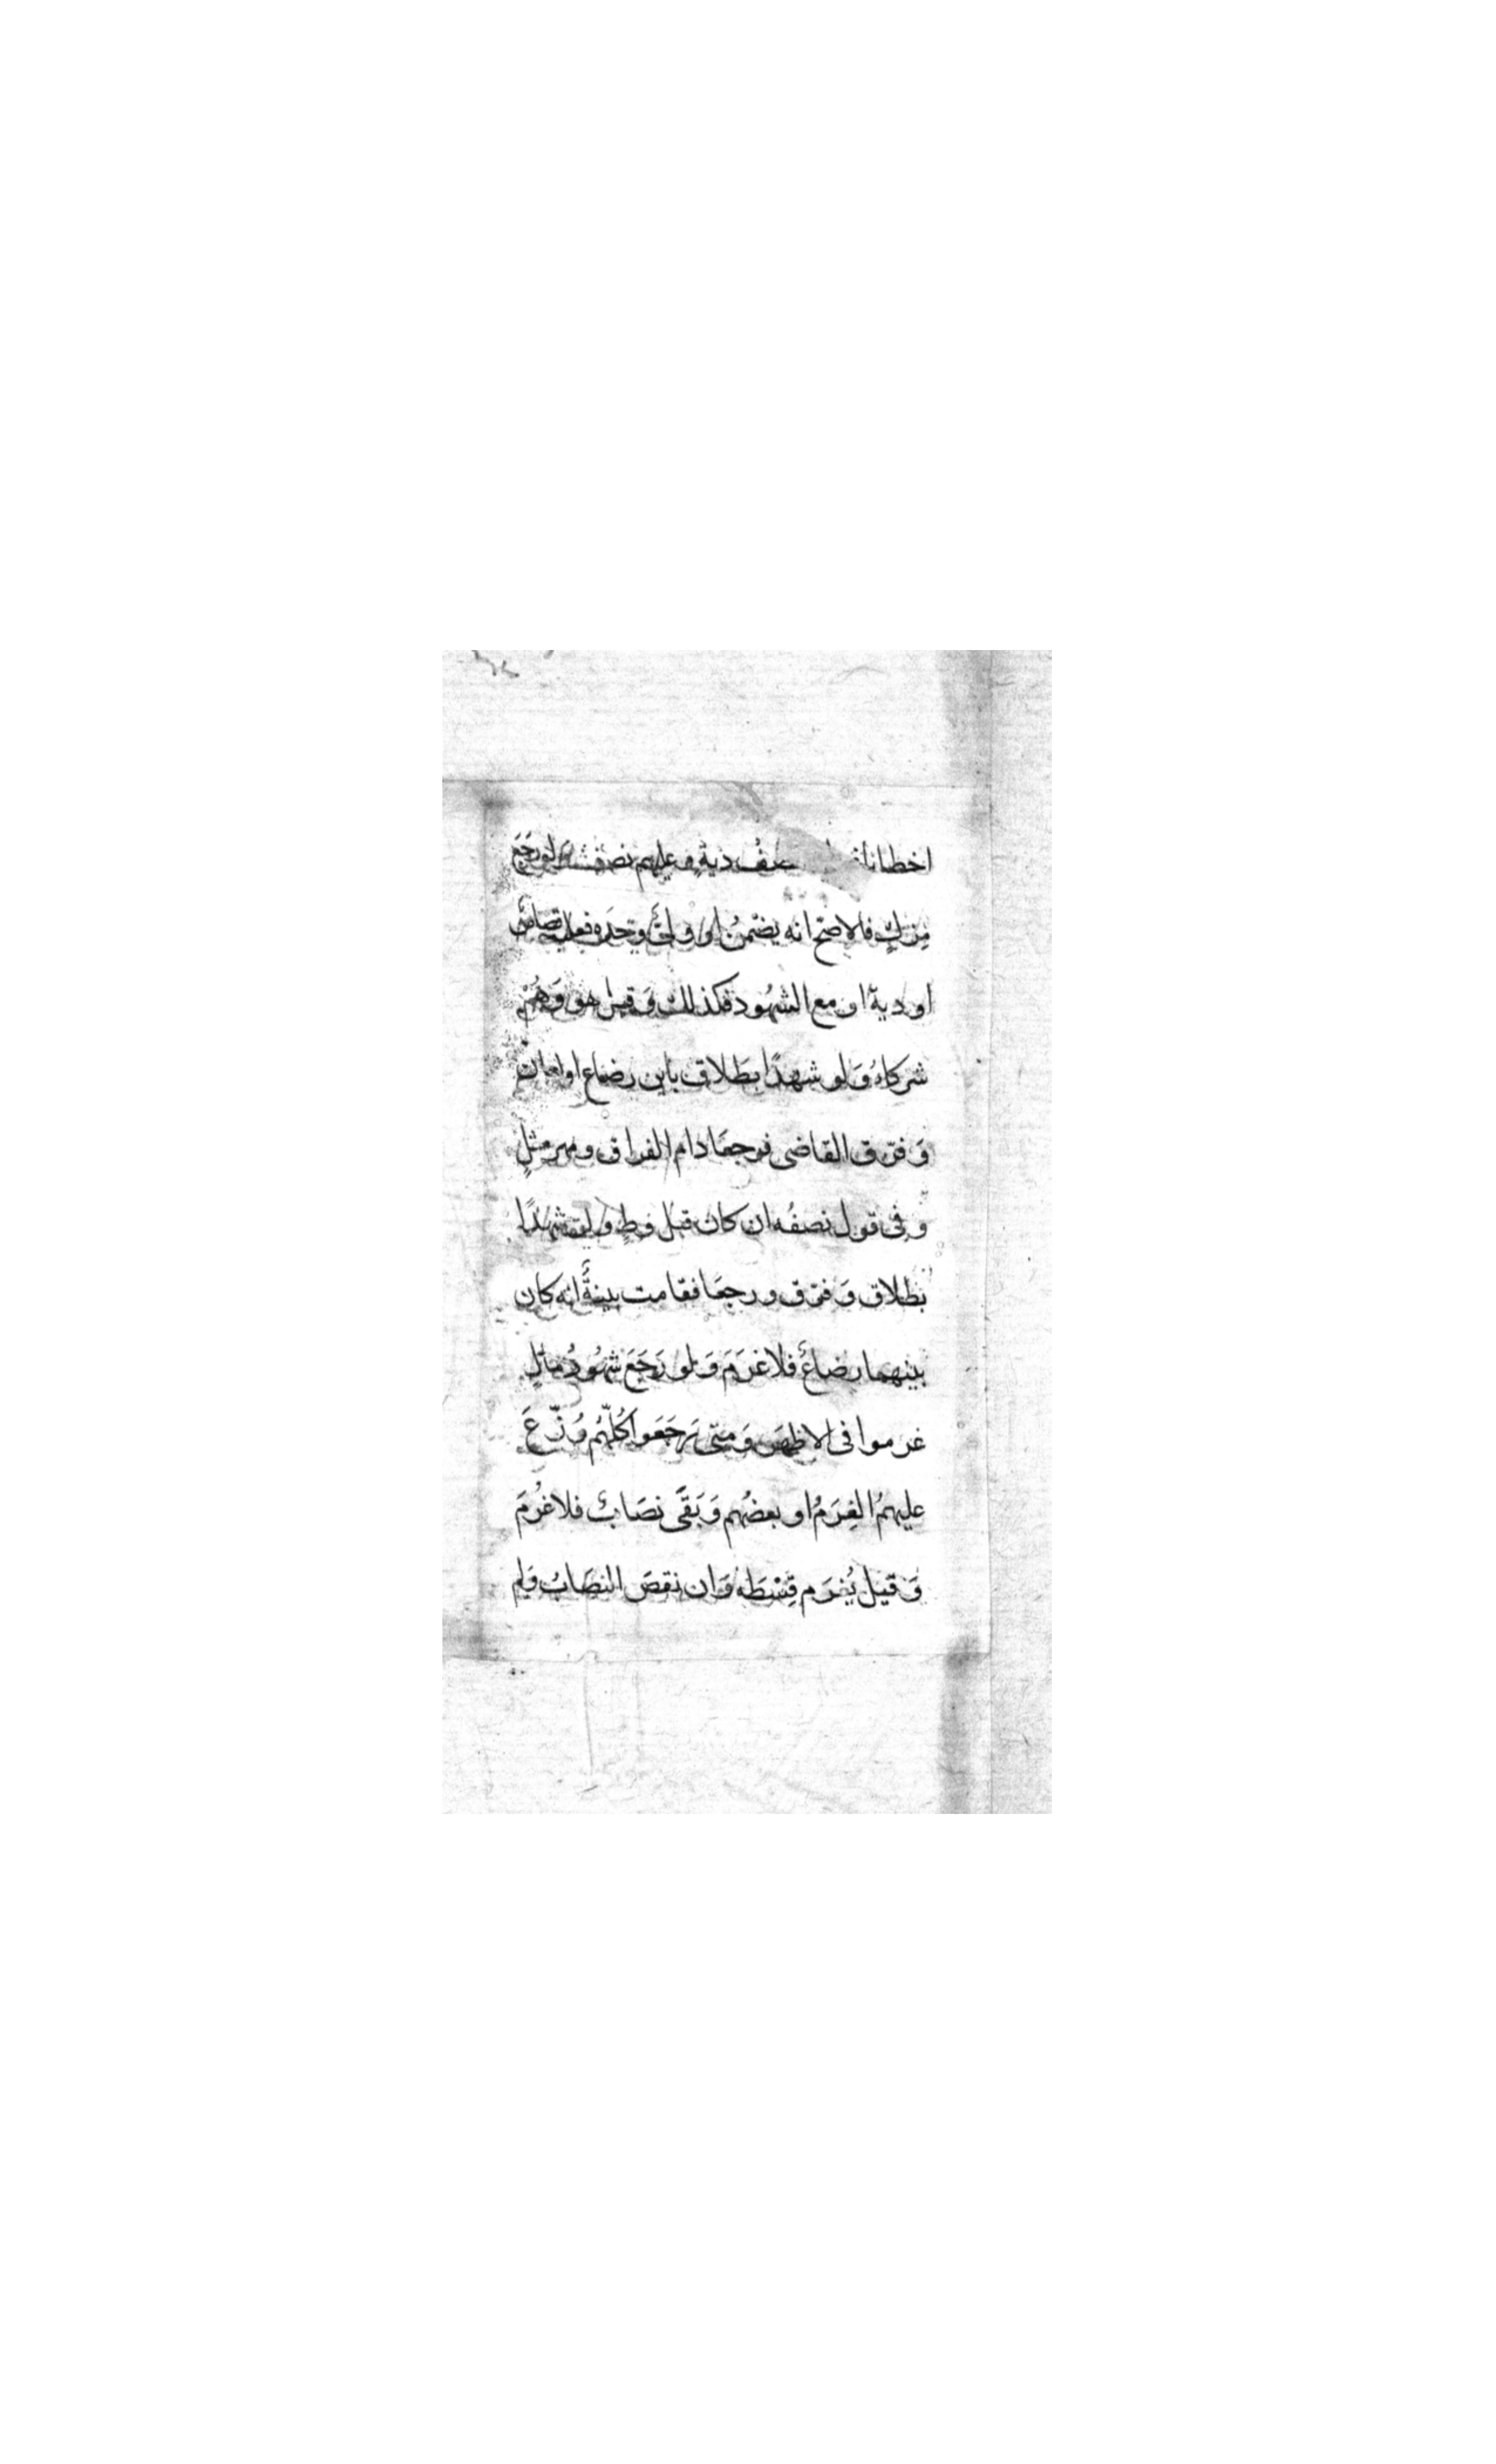 اخطانا نصفُ ديةٍ وعليهم نصف ولو رَجَعَ
مزكٍ فالاصَحّ انه يضمنُ او وليٌّ وحدَه فعليه قصاصٌ
او ديةٌ او مع الشهُود فكذلك وَقيل هو وَهُم
شركاءُ وَلو شهدَا بطَلاق باين رضاع او لعان
وَفرّق القاضى فرجعَا دام الفراق ومهر مثلٍ
وفى قول نصفُه ان كان قبل وطٍ ولو شهدَا
بطلاق وَفرّق ورجعَا فقامت بينةٌ انه كان
بينهما رضاعٌ فلا غرَمَ وَلو رَجَعَ شهُودُ مالٍ
غرموا فى الاظهَر وَمتى رَجَعَوا كُلّهُم وُزّعَ
عليهمُ الغِرَمُ او بعضُهم وَبَقَى نصَابٌ فلا غُرمَ
وَقيل يُغرَم قِسْطَه وَان نقصَ النصَابُ وَلم